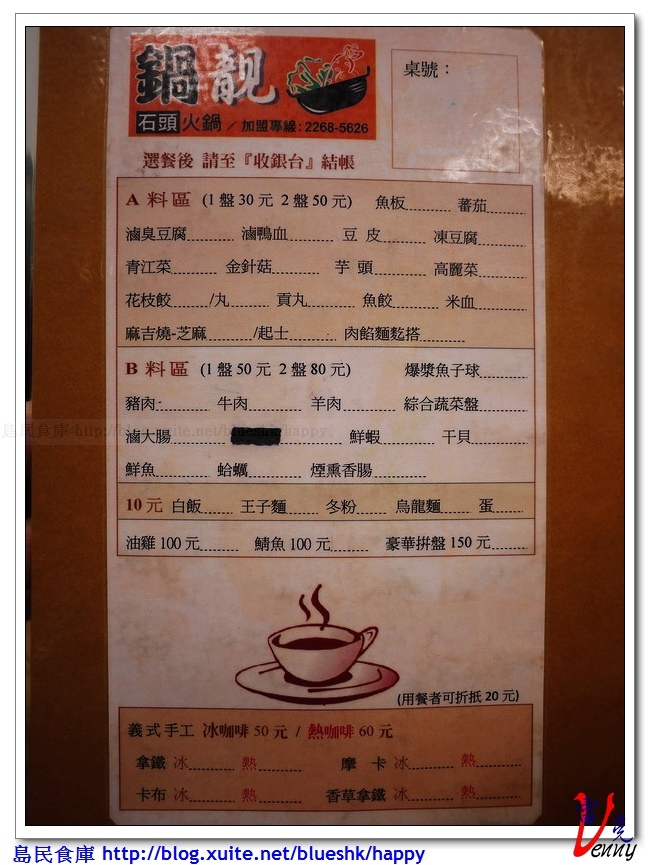 鍋靚
石頭火鍋／加盟專線：2268-5626
桌號：
選餐後 請至『收銀台』結帳
A 料區 (1 盤 30 元 2 盤 50 元) 魚板 蕃茄
滷臭豆腐 滷鴨血 豆皮 凍豆腐
青江菜 金針菇 芋頭 高麗菜
花枝餃 /丸 貢丸 魚餃 米血
麻吉燒-芝麻 /起士 肉餡麵麧搭
B 料區 (1 盤 50 元 2 盤 80 元) 爆漿魚子球
豬肉 牛肉 羊肉 綜合蔬菜盤
滷大腸 鮮蝦 干貝
鮮魚 蛤蠣 煙熏香腸
10 元 白飯 王子麵 冬粉 烏龍麵 蛋
油雞 100 元 鯖魚 100 元 豪華拼盤 150 元
(用餐者可折抵 20 元)
義式手工 冰咖啡 50 元 / 熱咖啡 60 元
拿鐵 冰 熱 摩卡 冰 熱
卡布 冰 熱 香草拿鐵 冰 熱
島民食庫-http://blog.xuite.net/blueshk/happy
Venny
島民食庫 http://blog.xuite.net/blueshk/happy